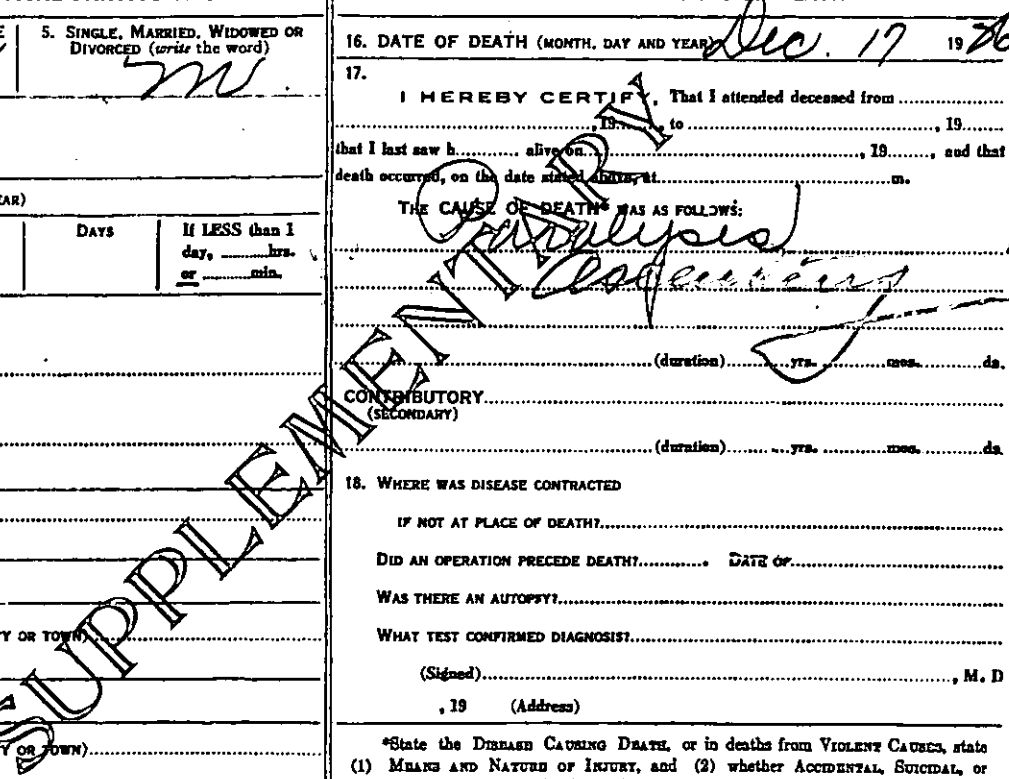 5. SINGLE, MARRIED, WIDOWED OR
DIVORCED (write the word)
M
EAR)
DAYS
If LESS than 1
day, ..........hrs.
or ..........min.
Y OR TOWN)
Y OR TOWN)
16. DATE OF DEATH (MONTH, DAY AND YEAR) Dec. 17 19
17.
I HEREBY CERTIFY, That I attended deceased from
, 19......, to ......, 19......
that I last saw h.......... alive on ......, 19......, and that
death occurred, on the date stated above, at ......m.
THE CAUSE OF DEATH* WAS AS FOLLOWS:
Paralysis
(duration) ......yrs. ......mos. ......ds.
CONTRIBUTORY
(SECONDARY)
(duration) ......yrs. ......mos. ......ds.
18. WHERE WAS DISEASE CONTRACTED
IF NOT AT PLACE OF DEATH?
DID AN OPERATION PRECEDE DEATH? ...... DATE OF
WAS THERE AN AUTOPSY?
WHAT TEST CONFIRMED DIAGNOSIS?
(Signed) ......, M. D
, 19 (Address)
*State the DISEASE CAUSING DEATH, or in deaths from VIOLENT CAUSES, state
(1) MEANS AND NATURE OF INJURY, and (2) whether ACCIDENTAL, SUICIDAL, or
SUPPLEMENTARY